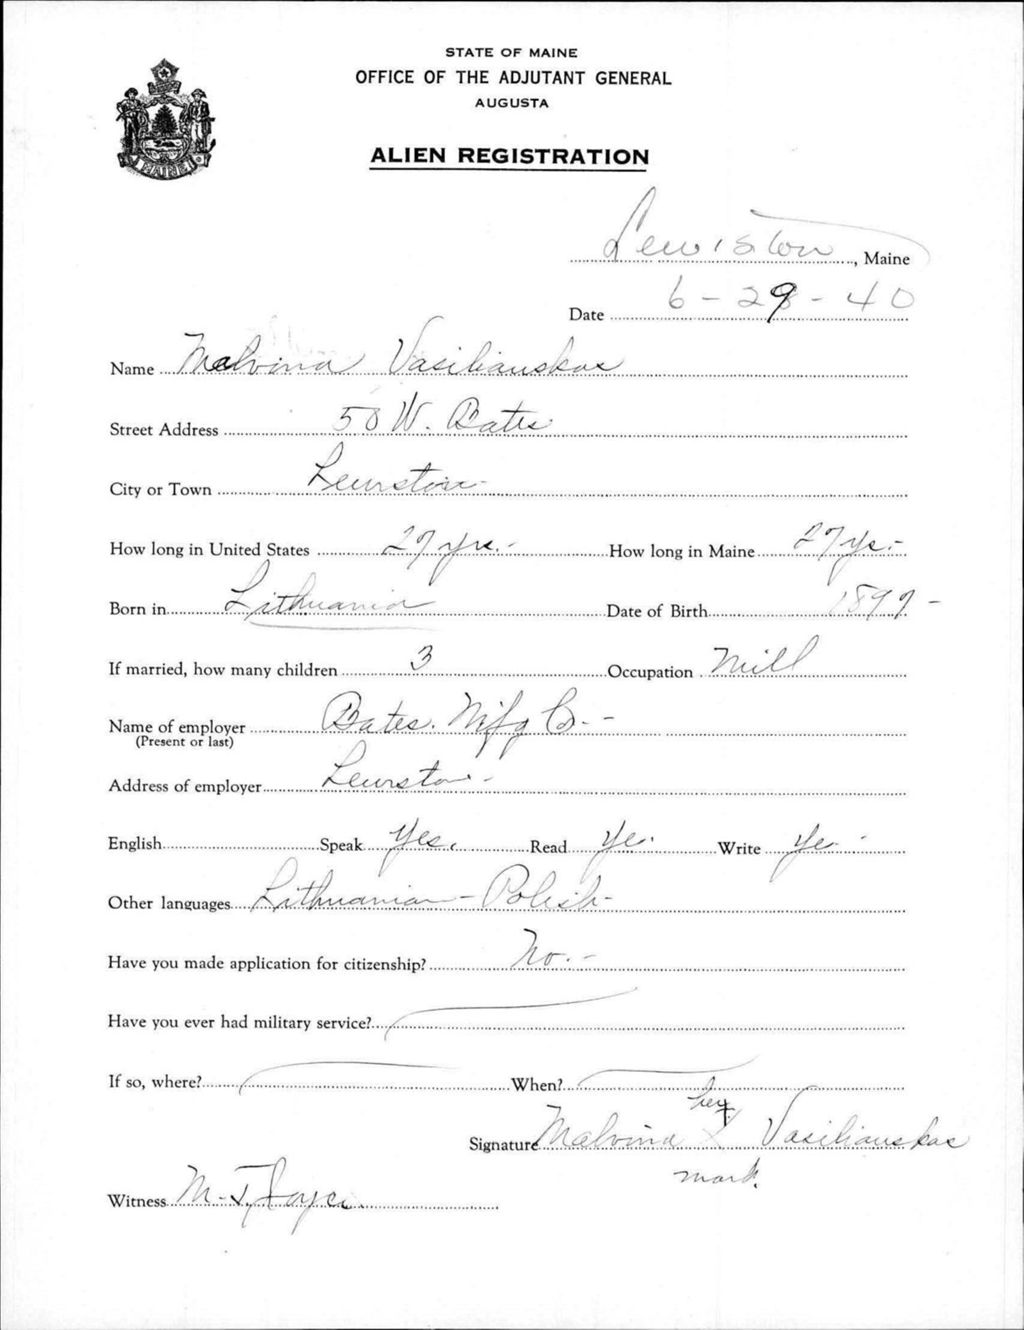 STATE OF MAINE
OFFICE OF THE ADJUTANT GENERAL
AUGUSTA
ALIEN REGISTRATION
MAINE
Lewiston, Maine
Date 6-29-40
Name Malvina Vasilianskas
Street Address 50 W. Bates
City or Town Lewiston
How long in United States 27 yrs. How long in Maine 27 ys.
Born in Lithuania Date of Birth 1897
If married, how many children 3 Occupation Mill
Name of employer Bates. Mfg Co.
(Present or last)
Address of employer Lewiston
English Speak Yes. Read Yes. Write Yes
Other languages Lithuanian - Polish
Have you made application for citizenship? No.
Have you ever had military service?
If so, where? When?
her
Signature Malvina X Vasilianskas
mark.
Witness M. J.